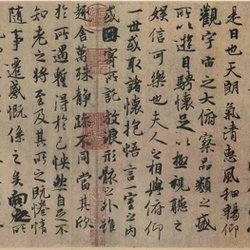 是日也天朗氣清惠風和暢仰
觀宇宙之大俯察品類之盛
所以遊目騁懷足以極視聽之
娛信可樂也夫人之相與俯仰
一世或取諸懷抱悟言一室之內
或因寄所託放浪形骸之外雖
趣舍萬殊靜躁不同當其欣
於所遇蹔得於己怏然自足不
知老之將至及其所之既惓情
隨事遷感慨係之矣向之所